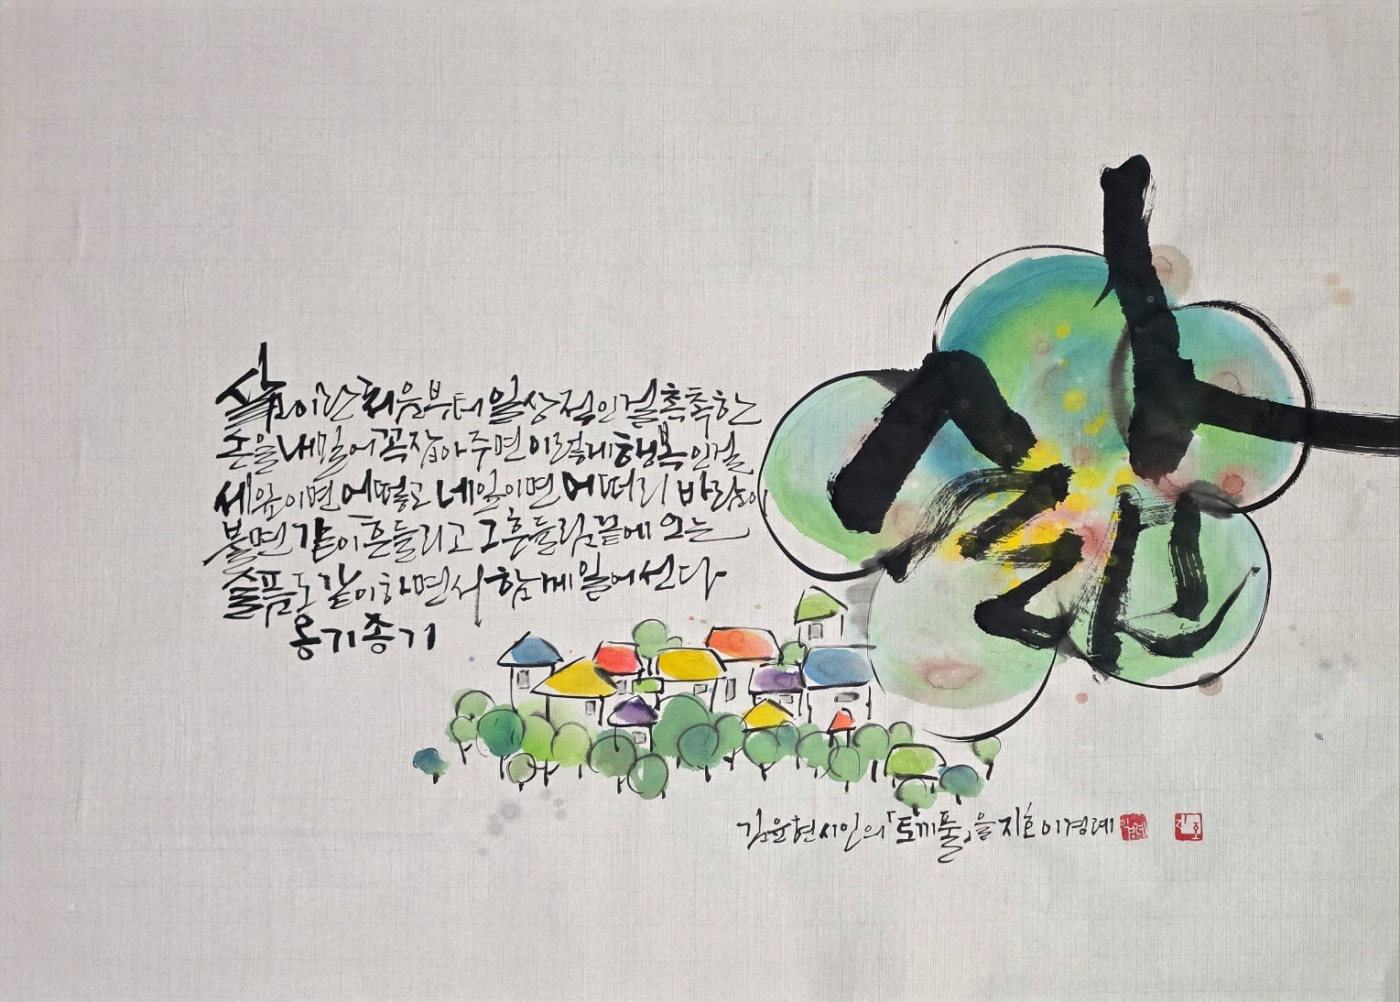 삶
삶이란 처음부터 일상적인걸 촉촉한
손을 내밀어 꼭 잡아주면 이렇게 행복인걸
세잎이면 어떻고 네잎이면 어떠리 바람이
불면 같이 흔들리고 그 흔들림 끝에 오는
슬픔도 같이하면서 함께 일어선다
옹기종기
김윤현시인의「토끼풀」을 지호 이경례
지호